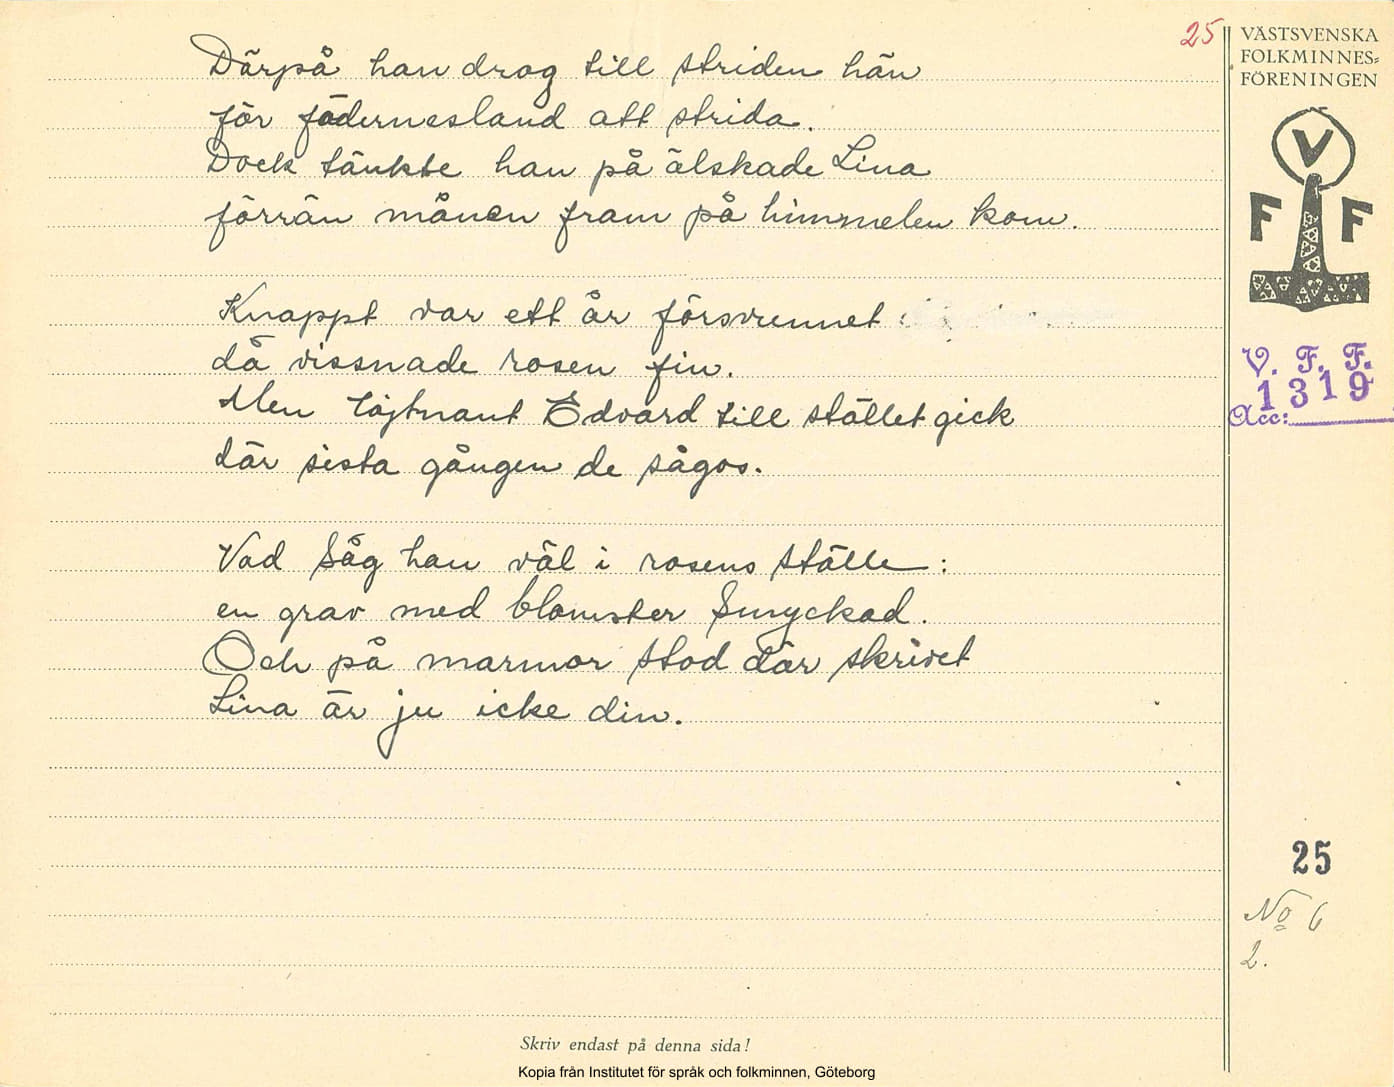 25
Därpå han drog till striden hän
för födernesland att strida.
Dock tänkte han på älskade Lina
förrän månen fram på himmelen kom.
Knappt var ett år försvunnet
då vissnade rosen fin.
Men löjtnant Edvard till stället gick
där sista gången de sågos.
Vad såg han väl i rosens ställe:
en grav med blomster smyckad.
Och på marmor stod där skrivet
Lina är ju icke din.
VÄSTSVENSKA
FOLKMINNES=
FÖRENINGEN
V
F F
V. F. F.
1319
Acc:
25
No 6
2.
Skriv endast på denna sida!
Kopia från Institutet för språk och folkminnen, Göteborg